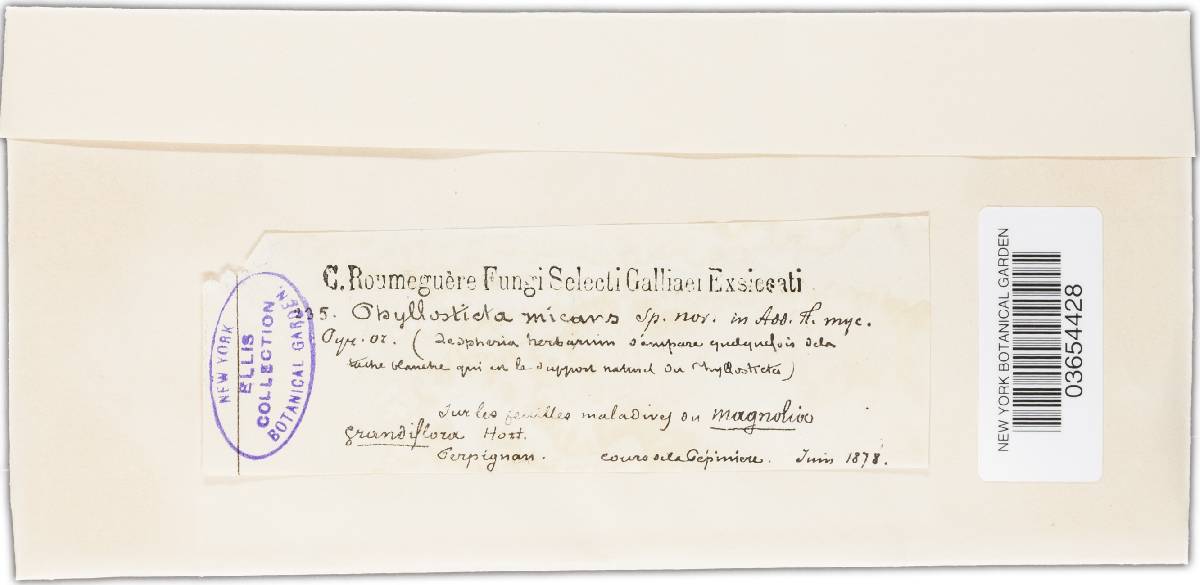 C. Roumeguère Fungi Selecti Galliaei Exsiccati
235. Phyllosticta micans Sp. nov. in Add. fl. myc.
Pyr. or. ( herbarum s'empare quelquefois de la
tache blanche qui est le support naturel du Phyllosticta)
Sur les feuilles maladives du magnolia
grandiflora Hort.
Perpignan. cours de la Pépiniere. Juin 1878.
NEW YORK
ELLIS
COLLECTION
BOTANICAL GARDEN.
NEW YORK BOTANICAL GARDEN
03654428